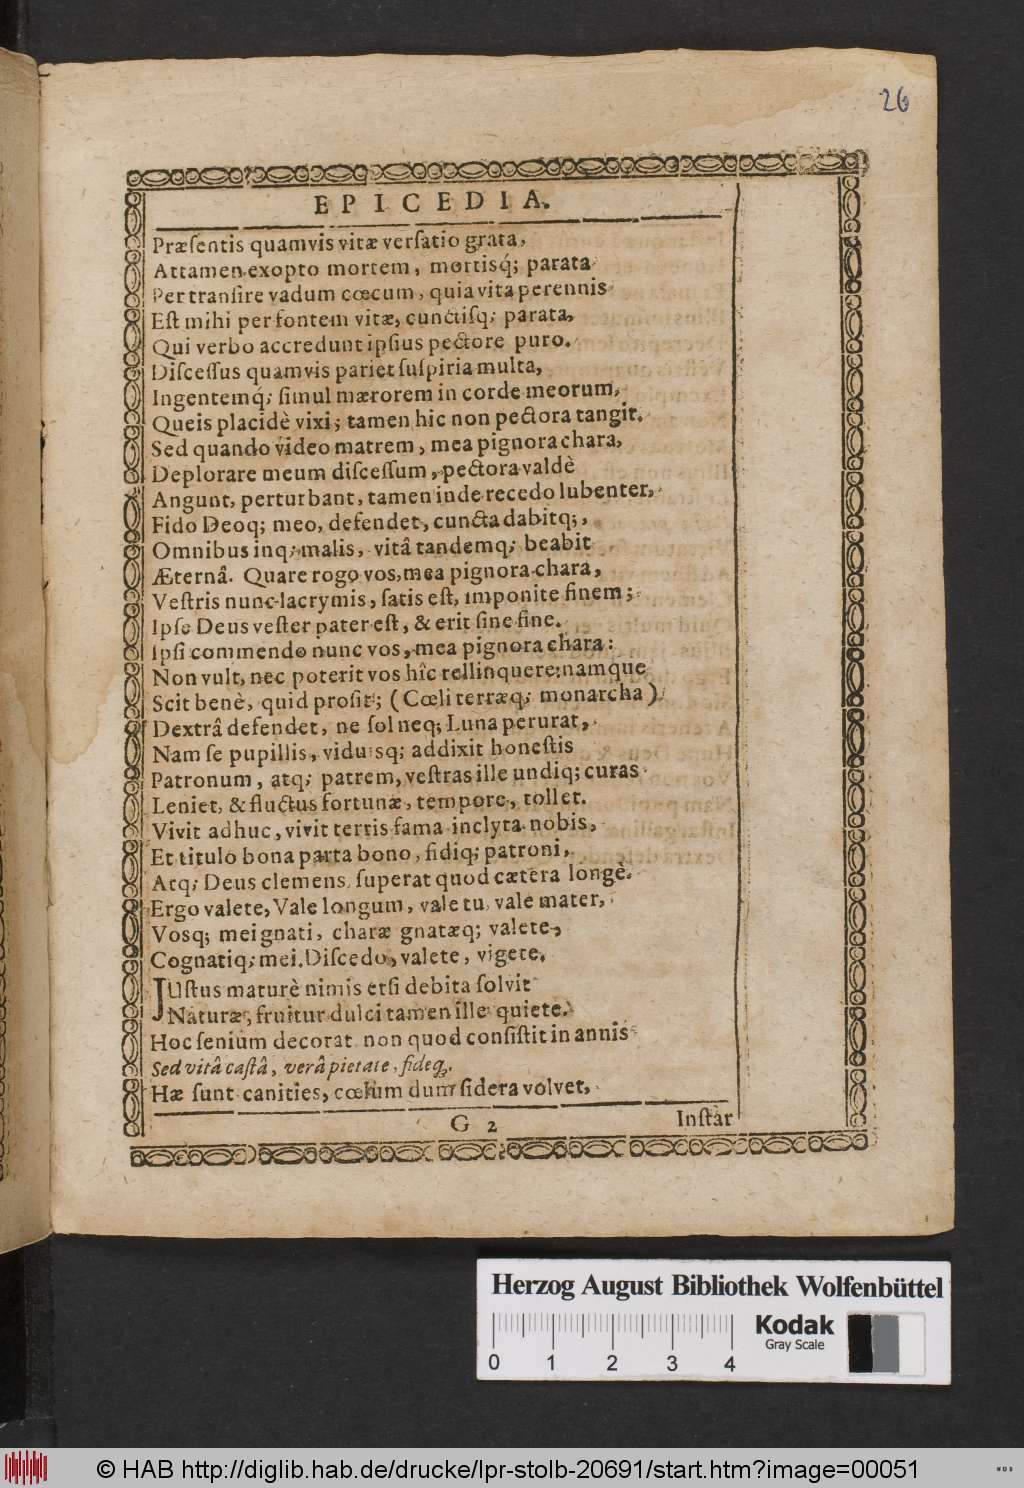 26
EPICEDIA.
Præſentis quamvis vitæ verſatio grata,
Attamen exopto mortem, mortisq́; parata
Per tranſire vadum cœcum, quia vita perennis
Eſt mihi per fontem vitæ, cunctiſq; parata,
Qui verbo accredunt ipſius pectore puro.
Diſceſſus quamvis pariet ſuſpiria multa,
Ingentemq́; ſimul mærorem in corde meorum,
Queis placidè vixi; tamen hic non pectora tangit.
Sed quando video matrem, mea pignora chara,
Deplorare meum diſceſſum, pectora valdè
Angunt, perturbant, tamen inde recedo lubenter,
Fido Deoq; meo, defendet, cuncta dabitq;,
Omnibus inq; malis, vitâ tandemq; beabit
Æternâ. Quare rogo vos, mea pignora chara,
Veſtris nunc lacrymis, ſatis eſt, imponite finem;
Ipſe Deus veſter pater eſt, & erit ſine fine.
Ipſi commendo nunc vos, mea pignora chara:
Non vult, nec poterit vos hîc rellinquere: namque
Scit benè, quid proſit; (Cœli terræq; monarcha)
Dextrâ defendet, ne ſol neq; Luna perurat,
Nam ſe pupillis, viduisq; addixit honeſtis
Patronum, atq; patrem, veſtras ille undiq; curas
Leniet, & fluctus fortunæ, tempore, tollet.
Vivit adhuc, vivit terris fama inclyta nobis,
Et titulo bona parta bono, fidiq; patroni,
Atq; Deus clemens ſuperat quod cætera longè.
Ergo valete, Vale longum, vale tu, vale mater,
Vosq; mei gnati, charæ gnatæq; valete,
Cognatiq; mei. Diſcedo, valete, vigete.
JUſtus maturè nimis etſi debita ſolvit
Naturæ, fruitur dulci tamen ille quiete.
Hoc ſenium decorat non quod conſiſtit in annis
Sed vitâ caſtâ, verâ pietate, fideq́;.
Hæ ſunt canities, cœlum dum ſidera volvet,
G 2
Inſtar
Herzog August Bibliothek Wolfenbüttel
Kodak
Gray Scale
0 1 2 3 4
© HAB http://diglib.hab.de/drucke/lpr-stolb-20691/start.htm?image=00051